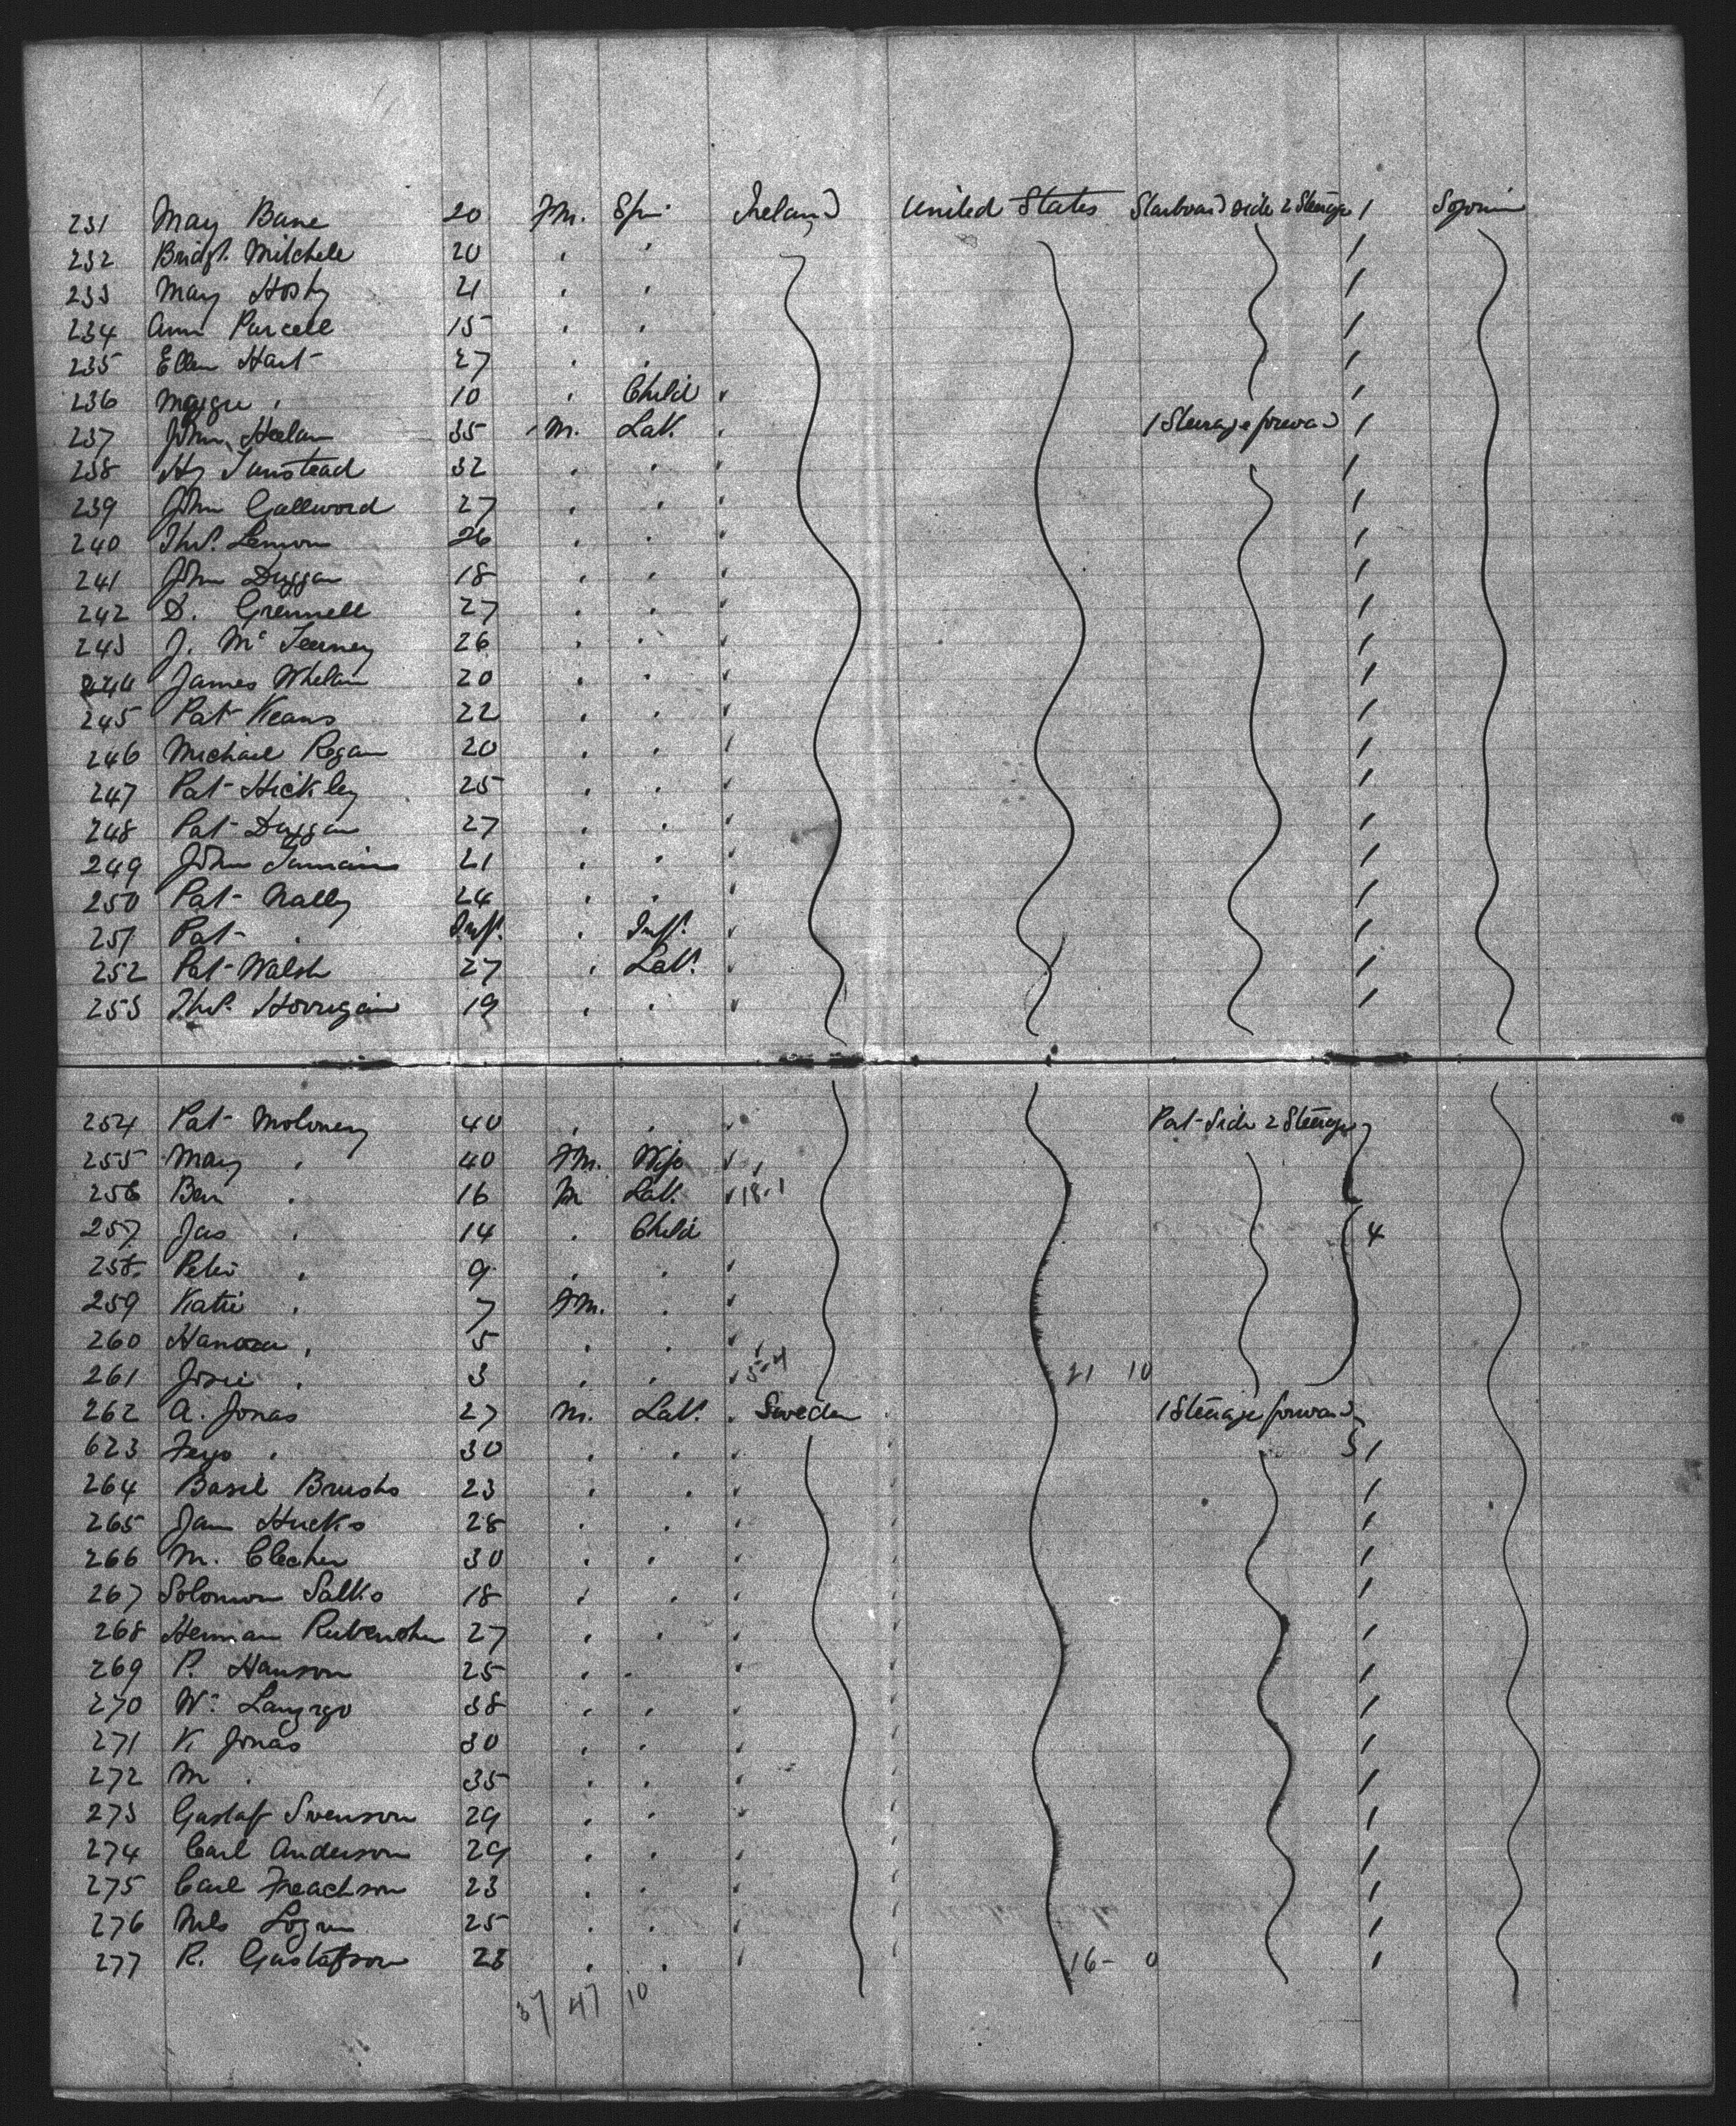 231 May Bane 20 Fm. Spi Ireland United States Starboard side 2 Steerage / Sojourn
232 Bridgt. Mitchell 20 /
233 May Hosty 21 /
234 Ann Purcell 15 /
235 Ellen Hart 27 /
236 Maggie " 10 " Child /
237 John Heelan 35 M. Lab. 1 Steerage forward /
238 Hy Tunstead 32 /
239 John Gallword 27 /
240 Thos. Lemon 26 /
241 John Duggan 18 /
242 D. Grennell 27 /
243 J. McTeerney 26 /
244 James Whelan 20 /
245 Pat Keans 22 /
246 Michael Regan 20 /
247 Pat Hickley 25 /
248 Pat Duggan 27 /
249 John 21 /
250 Pat Nally 24 /
251 Pat " Inft. " Inft. /
252 Pat Walsh 27 " Lab. /
253 Thos. Horrigan 19 /
254 Pat Moloney 40 Port Side 2 Steerage
255 May " 40 Fm. Wife
256 Ben " 16 M Lab. 18.1
257 Jas " 14 " Child 4
258 Peter " 9
259 Katie " 7 Fm.
260 Hanora " 5
261 Josie " 3 5-4 21 10
262 A. Jonas 27 M. Lab. Sweden 1 Steerage forward
623 Feyo " 30 /
264 Basil Brushs 23 /
265 Jam Hucks 28 /
266 M. Clecher 30 /
267 Solomon Salks 18 /
268 Herman 27 /
269 P. Hanson 25 /
270 Wm 38 /
271 K Jonas 30 /
272 M " 35 /
273 Gustaf Svenson 29 /
274 Carl Anderson 29 /
275 Carl Freachson 23 /
276 Nels 25 /
277 R. Gustafson 23 16- 0 /
37 47 10